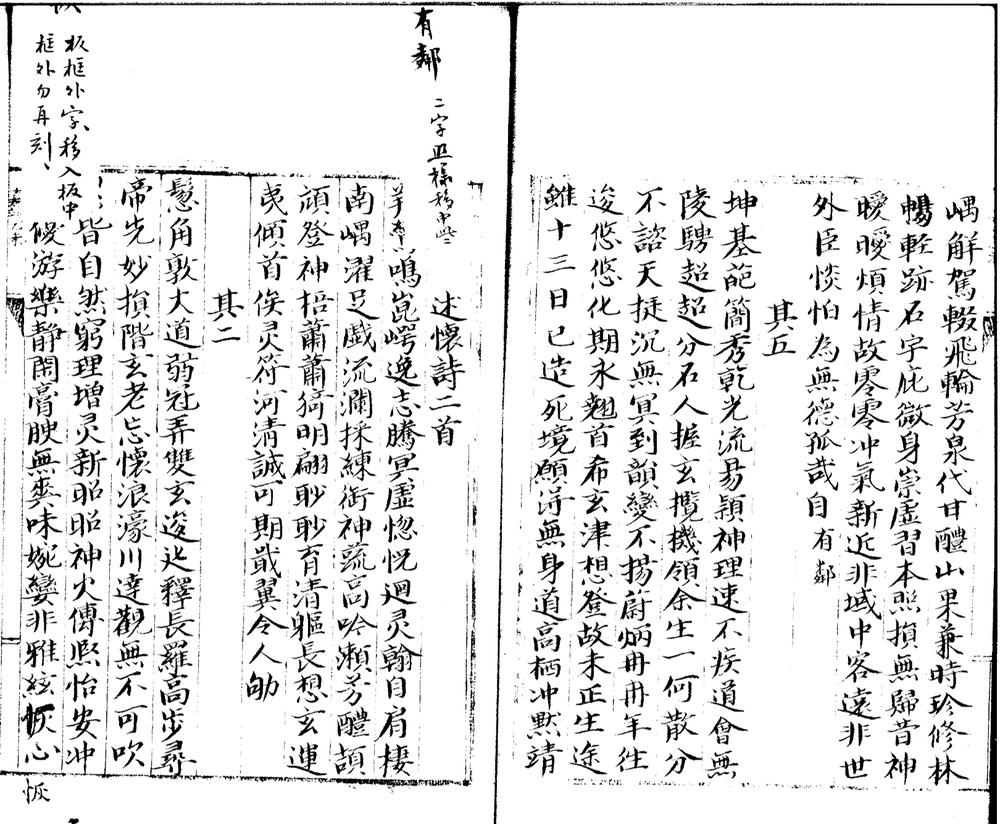 嵎解駕輟飛輪芳泉代甘醴山果兼時珍修林
暢輕跡石宇庇微身崇虛習本照損無歸昔神
曖曖煩情故零零冲氣新近非域中客遠非世
外臣惔怕為無德孤哉自有鄰
其五
坤基葩簡秀乾光流易穎神理速不疾道會無
陵騁超超分石人握玄攬機領余生一何散分
不諮天挺沉無冥到韻變不揚蔚炳冉冉年往
逡悠悠化期永翹首希玄津想登故未正生途
雖十三日已造死境願得無身道高栖冲默靖
有鄰
二字照樣移中些
述懷詩二首
鳴崑崿逸志騰冥虛惚怳迴灵翰自肩棲
南嵎濯足戲流瀾採練銜神蔬高吟瀨芳醴頡
頏登神梧蕭蕭猗明翮眇眇育清軀長想玄運
夷傾首俟灵符河清誠可期戢翼令人劬
其二
鬆角敦大道弱冠弄雙玄逡迆釋長羅高步尋
帝先妙損階玄老忘懷浪濠川達觀無不可吹
皆自然窮理增灵新昭昭神火傳熙怡安冲
優游樂靜閑膏腴無爽味婉孌非雅絃恢心
板框外字移入板中
框外勿再刻
恢